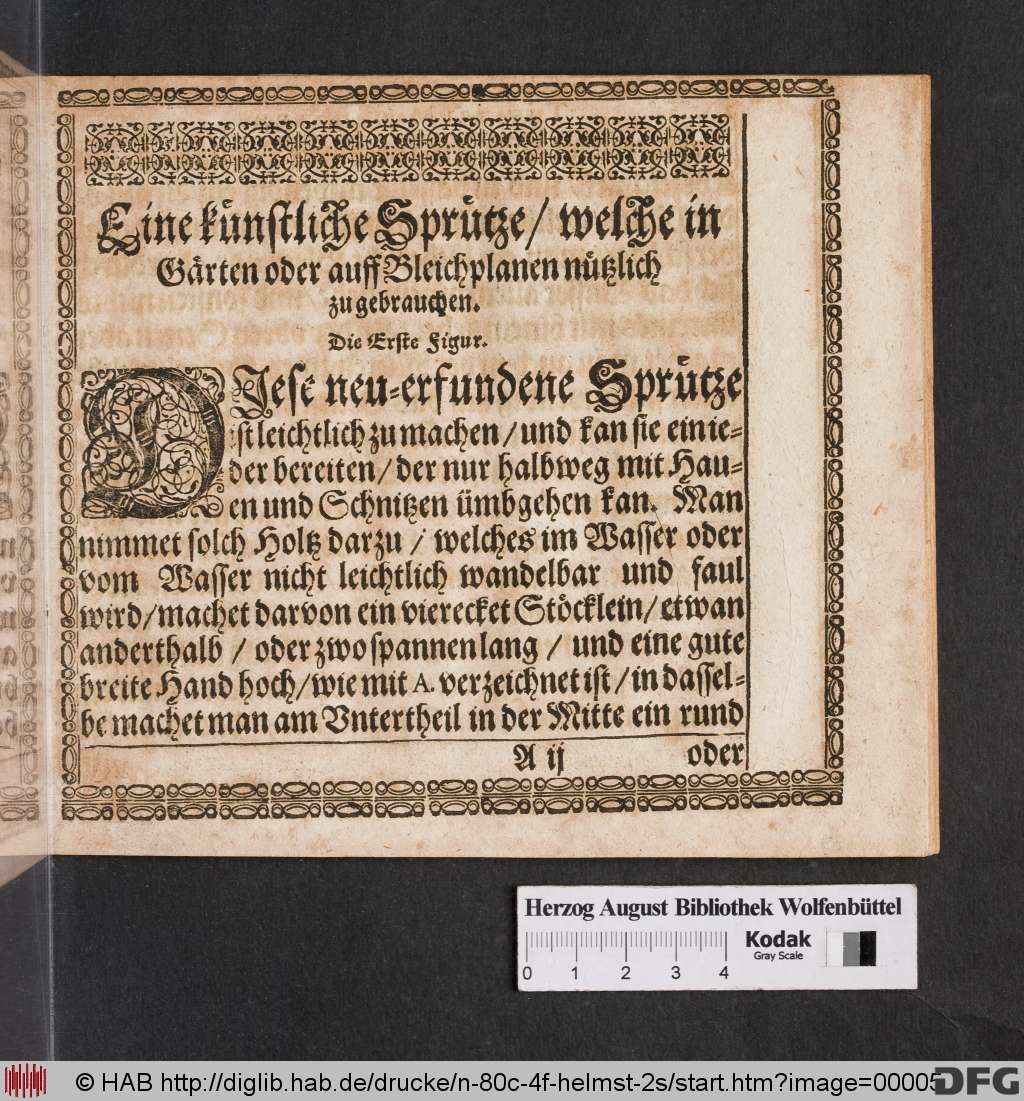 Eine künstliche Sprütze / welche in
Gärten oder auff Bleichplanen nützlich
zu gebrauchen.
Die Erste Figur.
DIese neu-erfundene Sprütze
ist leichtlich zu machen / und kan sie ein ie-
der bereiten / der nur halbweg mit Hau-
en und Schnitzen ümbgehen kan. Man
nimmet solch Holtz darzu / welches im Wasser oder
vom Wasser nicht leichtlich wandelbar und faul
wird / machet darvon ein vierecket Stöcklein / etwan
anderthalb / oder zwo spannen lang / und eine gute
breite Hand hoch / wie mit A. verzeichnet ist / in dassel-
be machet man am Vntertheil in der Mitte ein rund
A ij oder
Herzog August Bibliothek Wolfenbüttel
0 1 2 3 4
Kodak
Gray Scale
© HAB http://diglib.hab.de/drucke/n-80c-4f-helmst-2s/start.htm?image=00005
DFG